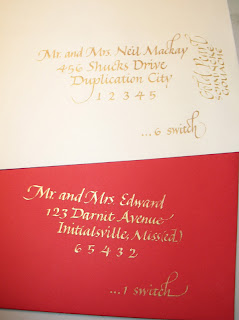 Mr. and Mrs. Neil Mackay
456 Shucks Drive
Duplication City
1 2 3 4 5
...6 switch
Mr. and Mrs. Edward
123 Darnit Avenue
Initialsville, Miss(ed.)
6 5 4 3 2
...1 switch